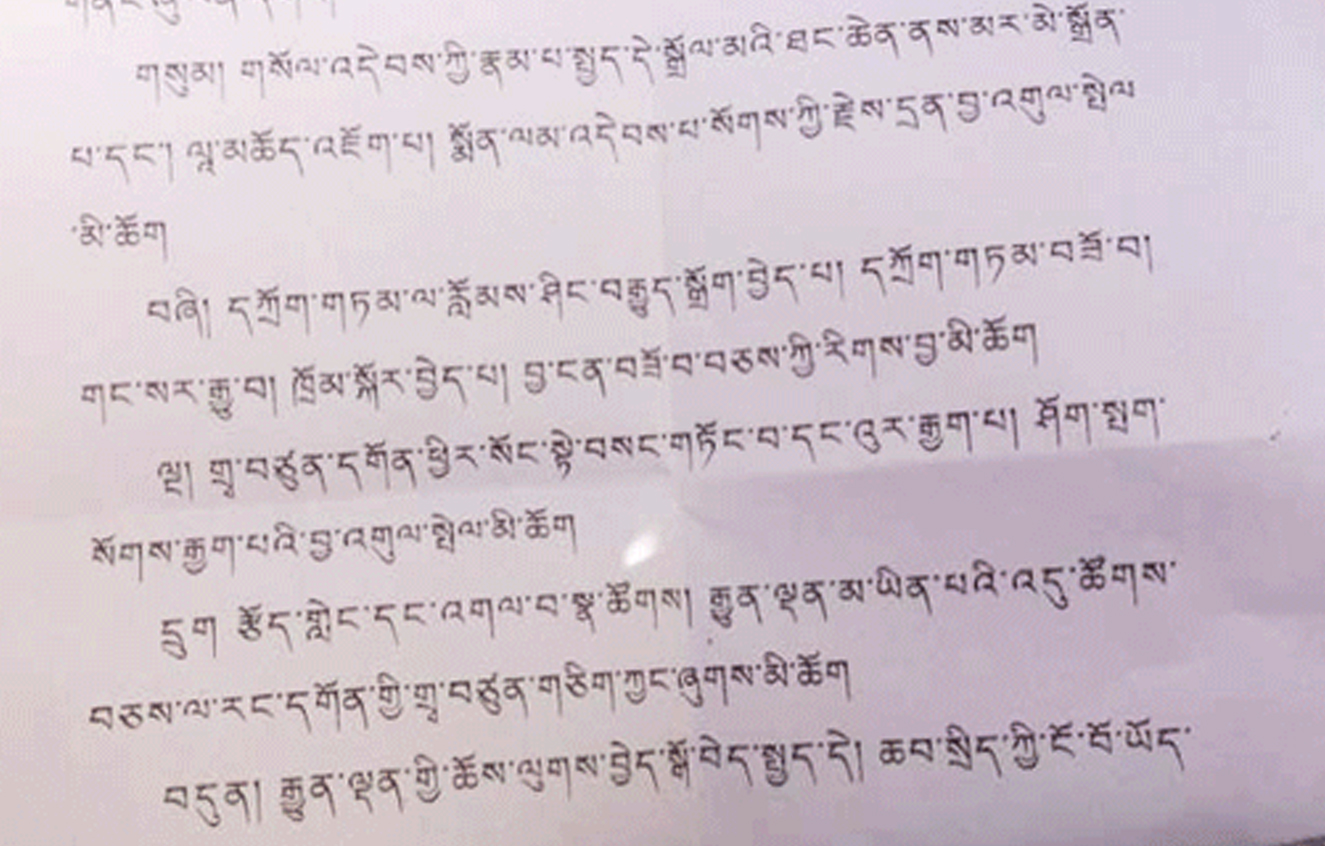 གསུམ། གསོལ་འདེབས་ཀྱི་རྣམ་པ་སྤྱད་དེ་སྒྲོལ་མའི་ཐང་ཆེན་ནས་མར་མེ་སྒྲོན་
པ་དང་། ལྷ་མཆོད་འཇོག་པ། སྨོན་ལམ་འདེབས་པ་སོགས་ཀྱི་རྗེས་དྲན་བྱ་འགུལ་སྤེལ
་མི་ཆོག
བཞི། དཀྲོག་གཏམ་ལ་རློམས་ཤིང་བརྒྱུད་སྒྲོག་བྱེད་པ། དཀྲོག་གཏམ་བཟོ་བ།
གང་སར་རྒྱུ་བ། ཁྲོམ་སྐོར་བྱེད་པ། བྱ་ངན་བཟོ་བ་བཅས་ཀྱི་རིགས་བྱ་མི་ཆོག
ལྔ། གྲྭ་བཙུན་དགོན་ཕྱིར་སོང་སྟེ་བསང་གཏོང་བ་དང་འུར་རྒྱག་པ། ཤོག་སྤག་
སོགས་རྒྱག་པའི་བྱ་འགུལ་སྤེལ་མི་ཆོག
དྲུག རྩོད་གླེང་དང་འགལ་བ་སྣ་ཚོགས། རྒྱུན་ལྡན་མ་ཡིན་པའི་འདུ་ཚོགས་
བཅས་ལ་རང་དགོན་གྱི་གྲྭ་བཙུན་གཅིག་ཀྱང་ཞུགས་མི་ཆོག
བདུན། རྒྱུན་ལྡན་གྱི་ཆོས་ལུགས་བྱེད་སྒོ་བེད་སྤྱད་དེ། ཆབ་སྲིད་ཀྱི་ངོ་བོ་ཡོད་